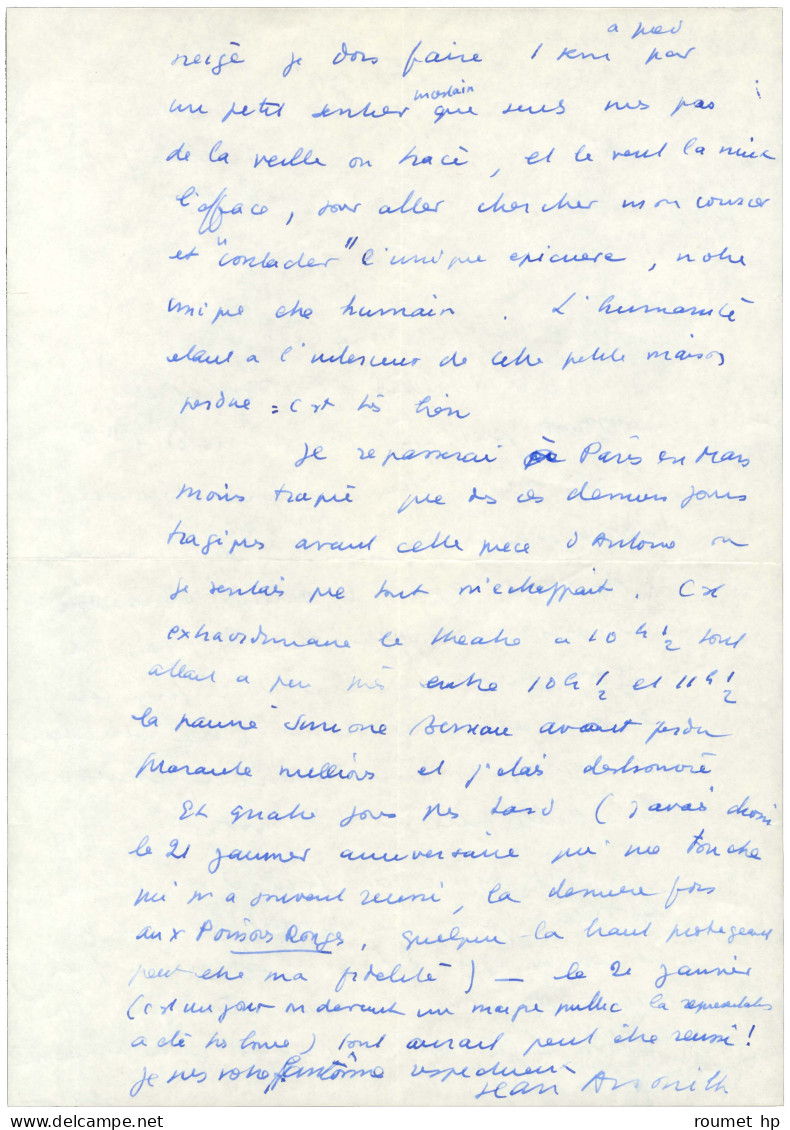 à pied
neige je dois faire 1 km par
un petit sentier que seuls mes pas
de la veille on tracé, et le vent la nuit
l'efface, pour aller chercher mon courrier
et "contacter" l'unique epiciere, notre
unique etre humain. L'humanité
etant a l'interieur de cette petite maison
perdue = c'est très bien
Je repasserai à Paris en Mars
moins traqué que des ces derniers jours
tragiques avant cette piece d'Antoine ou
je sentais que tout m'echappait. C'est
extraordinaire le theatre a 10 h 1/2 tout
allait a peu près entre 10 h 1/2 et 11 h 1/2
la pauvre Simone Berriau avait perdu
quarante millions et j'etais deshonoré
Et quatre jours plus tard (j'avais choisi
le 21 janvier anniversaire qui me touche
qui m'a souvent reussi, la derniere fois
aux Poissons Rouges, quelqu'un la haut protegeant
peut etre ma fidelité) — le 21 janvier
(c'est un jour ou devant un public la
a été très bonne) tout aurait peut être reussi!
Je suis votre fantôme respectueux
Jean Anouilh
roumet hp